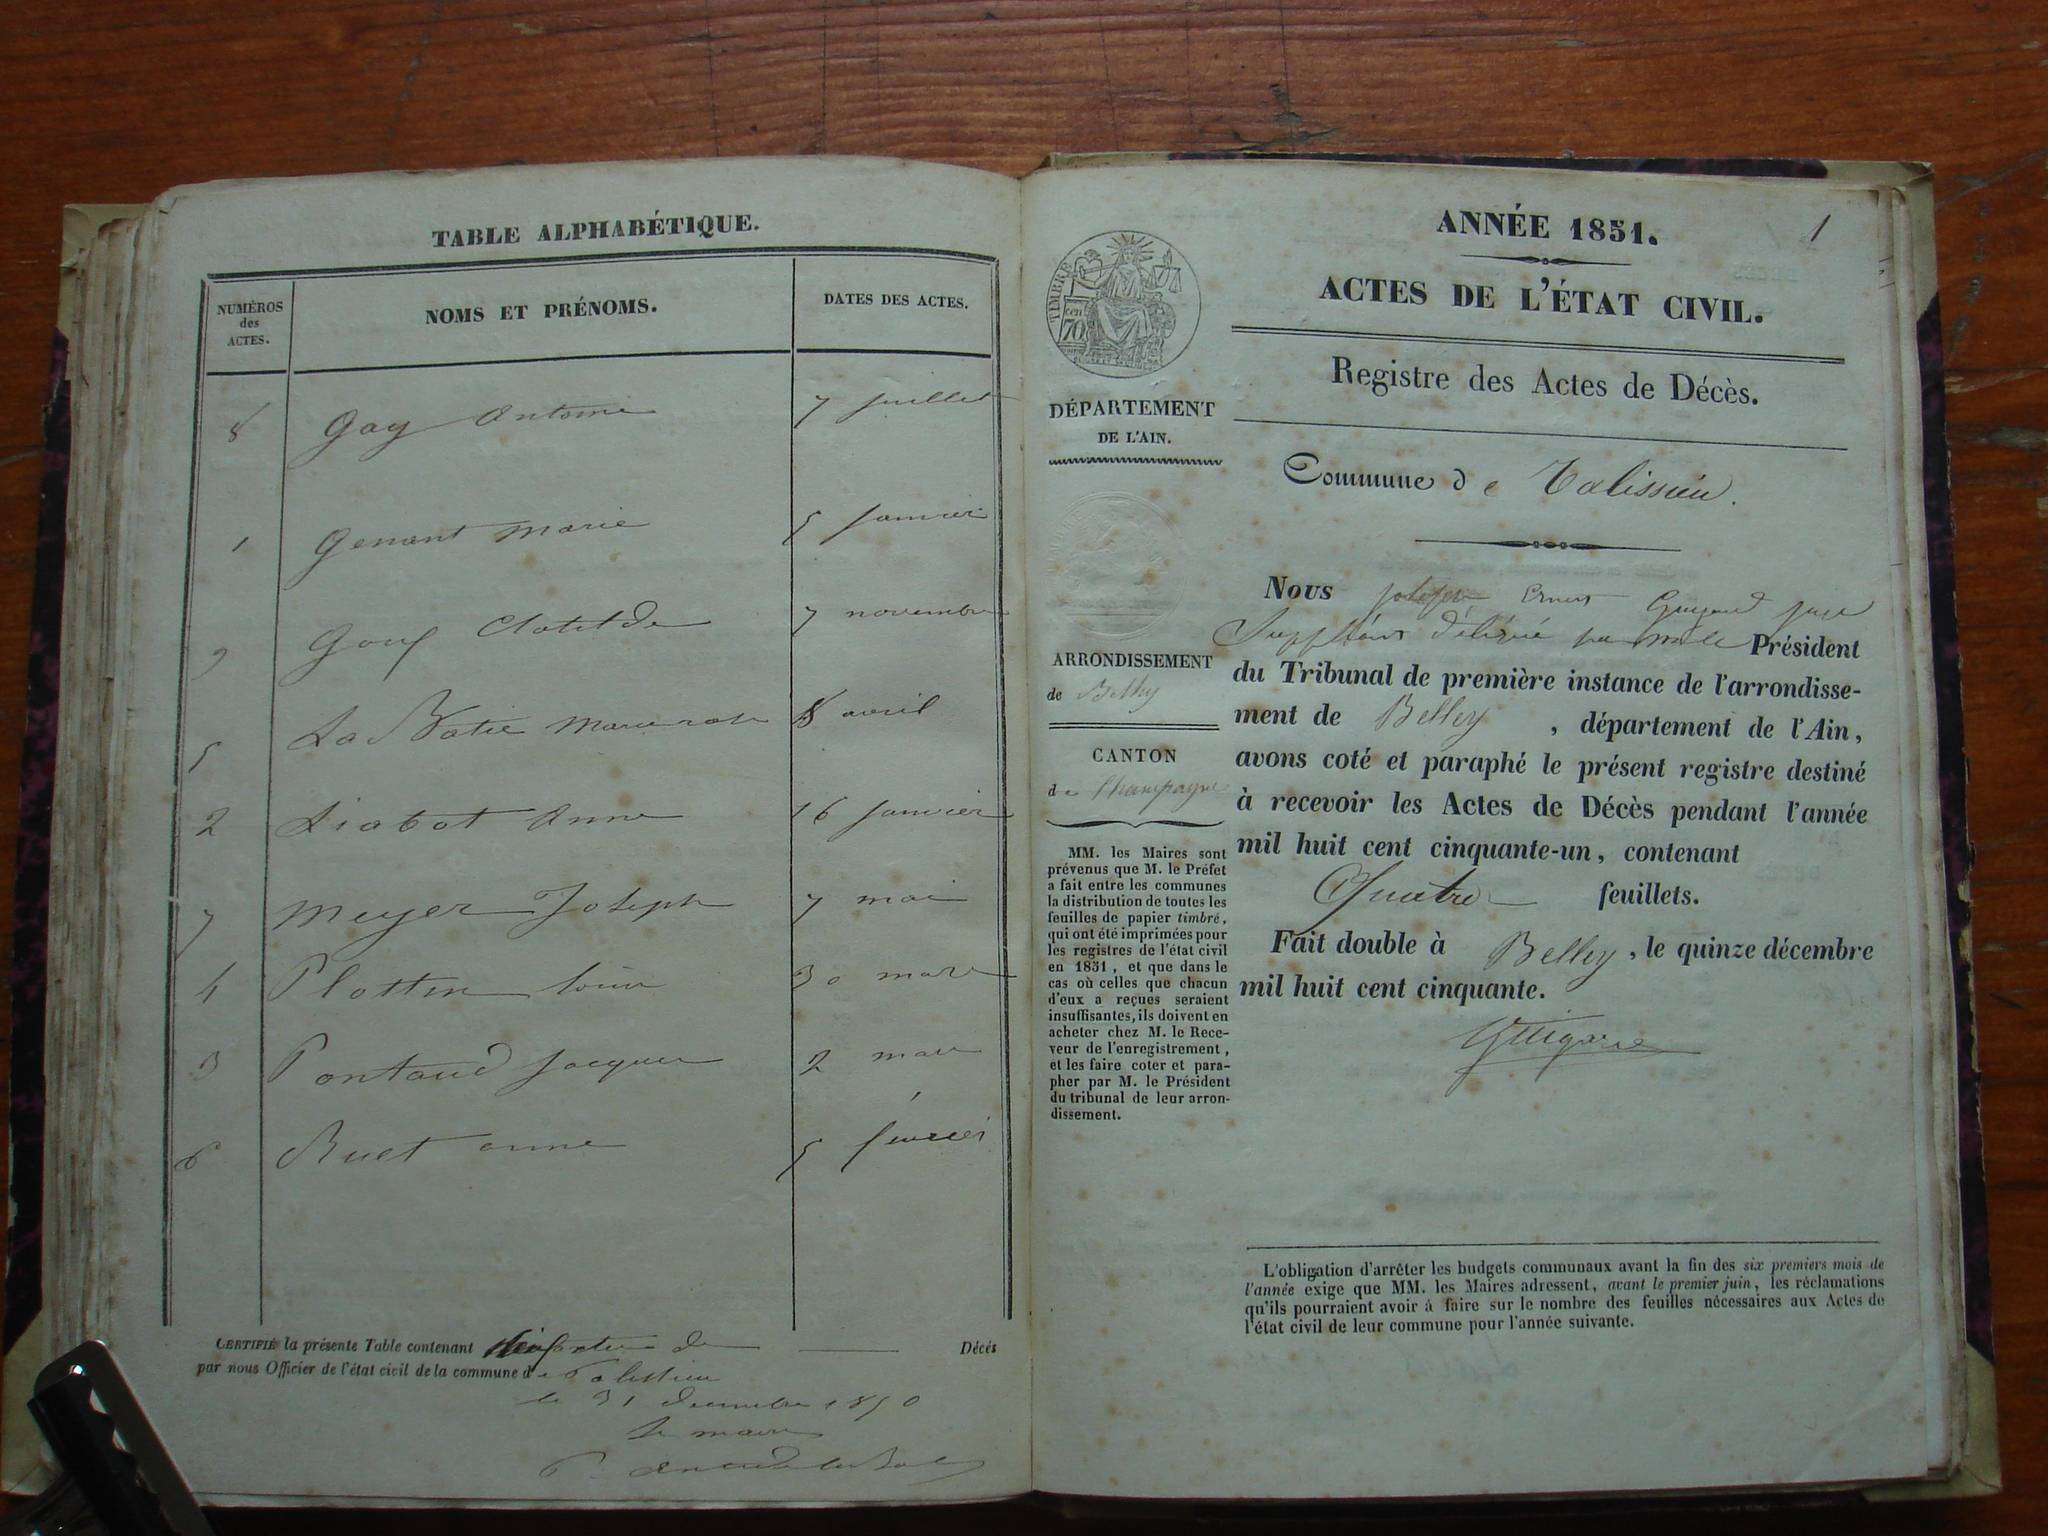 TABLE ALPHABÉTIQUE.
NUMÉROS
des
ACTES.
NOMS ET PRÉNOMS.
DATES DES ACTES.
8 Gay Antoine 7 juillet
1 Genant Marie 5 janvier
9 Gouf Clotilde 7 novembre
5 La Batie Marie 8 avril
2 Liabot Anne 16 janvier
7 Meyer Joseph 7 mai
4 Plottin 30 mars
3 Pontaud Jacques 2 mars
6 Ruet anne 5 février
CERTIFIÉ la présente Table contenant Décés
par nous Officier de l'état civil de la commune de Talissieu
le 31 décembre 1850
le maire
ANNÉE 1851.
1
ACTES DE L'ÉTAT CIVIL.
Registre des Actes de Décès.
Commune de Talissieu.
TIMBRE
70 cen
DÉPARTEMENT
DE L'AIN.
ARRONDISSEMENT
de Belley
CANTON
de Champagne
MM. les Maires sont
prévenus que M. le Préfet
a fait entre les communes
la distribution de toutes les
feuilles de papier timbré,
qui ont été imprimées pour
les registres de l'état civil
en 1851, et que dans le
cas où celles que chacun
d'eux a reçues seraient
insuffisantes, ils doivent en
acheter chez M. le Rece-
veur de l'enregistrement,
et les faire coter et para-
pher par M. le Président
du tribunal de leur arron-
dissement.
Nous Joseph Ernest Guigard juge
Suppléant délégué par Mr le Président
du Tribunal de première instance de l'arrondisse-
ment de Belley, département de l'Ain,
avons coté et paraphé le présent registre destiné
à recevoir les Actes de Décès pendant l'année
mil huit cent cinquante-un, contenant
Quatre feuillets.
Fait double à Belley, le quinze décembre
mil huit cent cinquante.
Guigard
L'obligation d'arrêter les budgets communaux avant la fin des six premiers mois de
l'année exige que MM. les Maires adressent, avant le premier juin, les réclamations
qu'ils pourraient avoir à faire sur le nombre des feuilles nécessaires aux Actes de
l'état civil de leur commune pour l'année suivante.